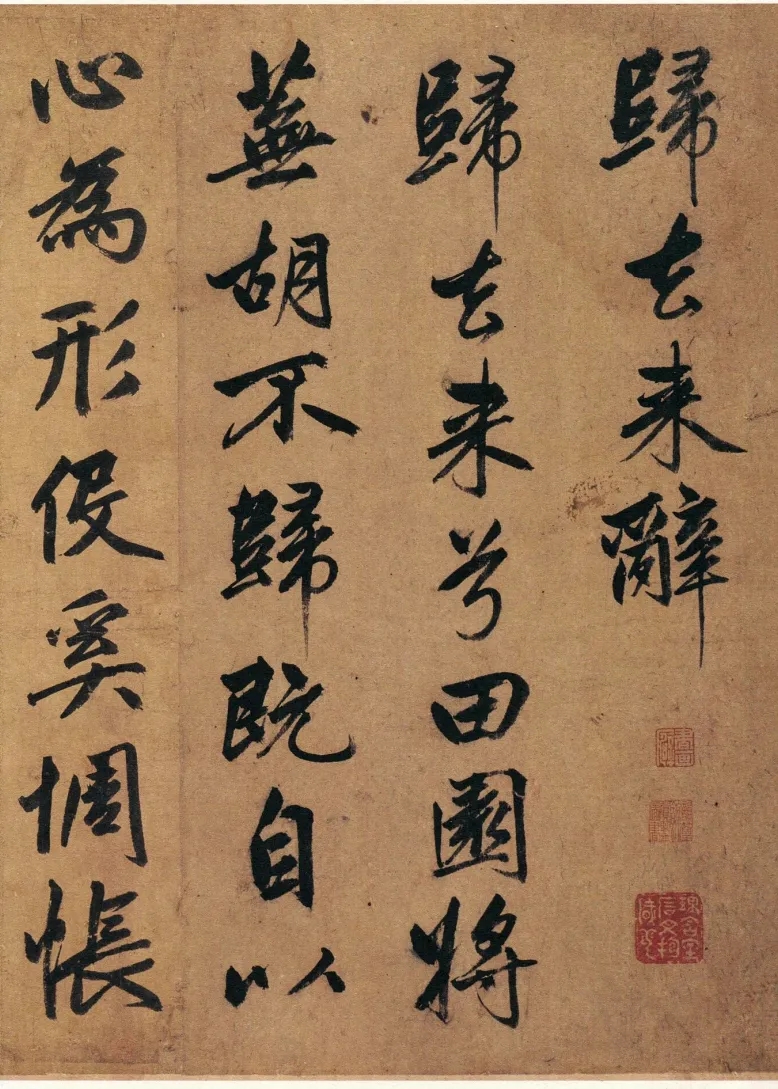 歸去来辭
歸去来兮田園將
蕪胡不歸既自以
心為形伇奚惆悵